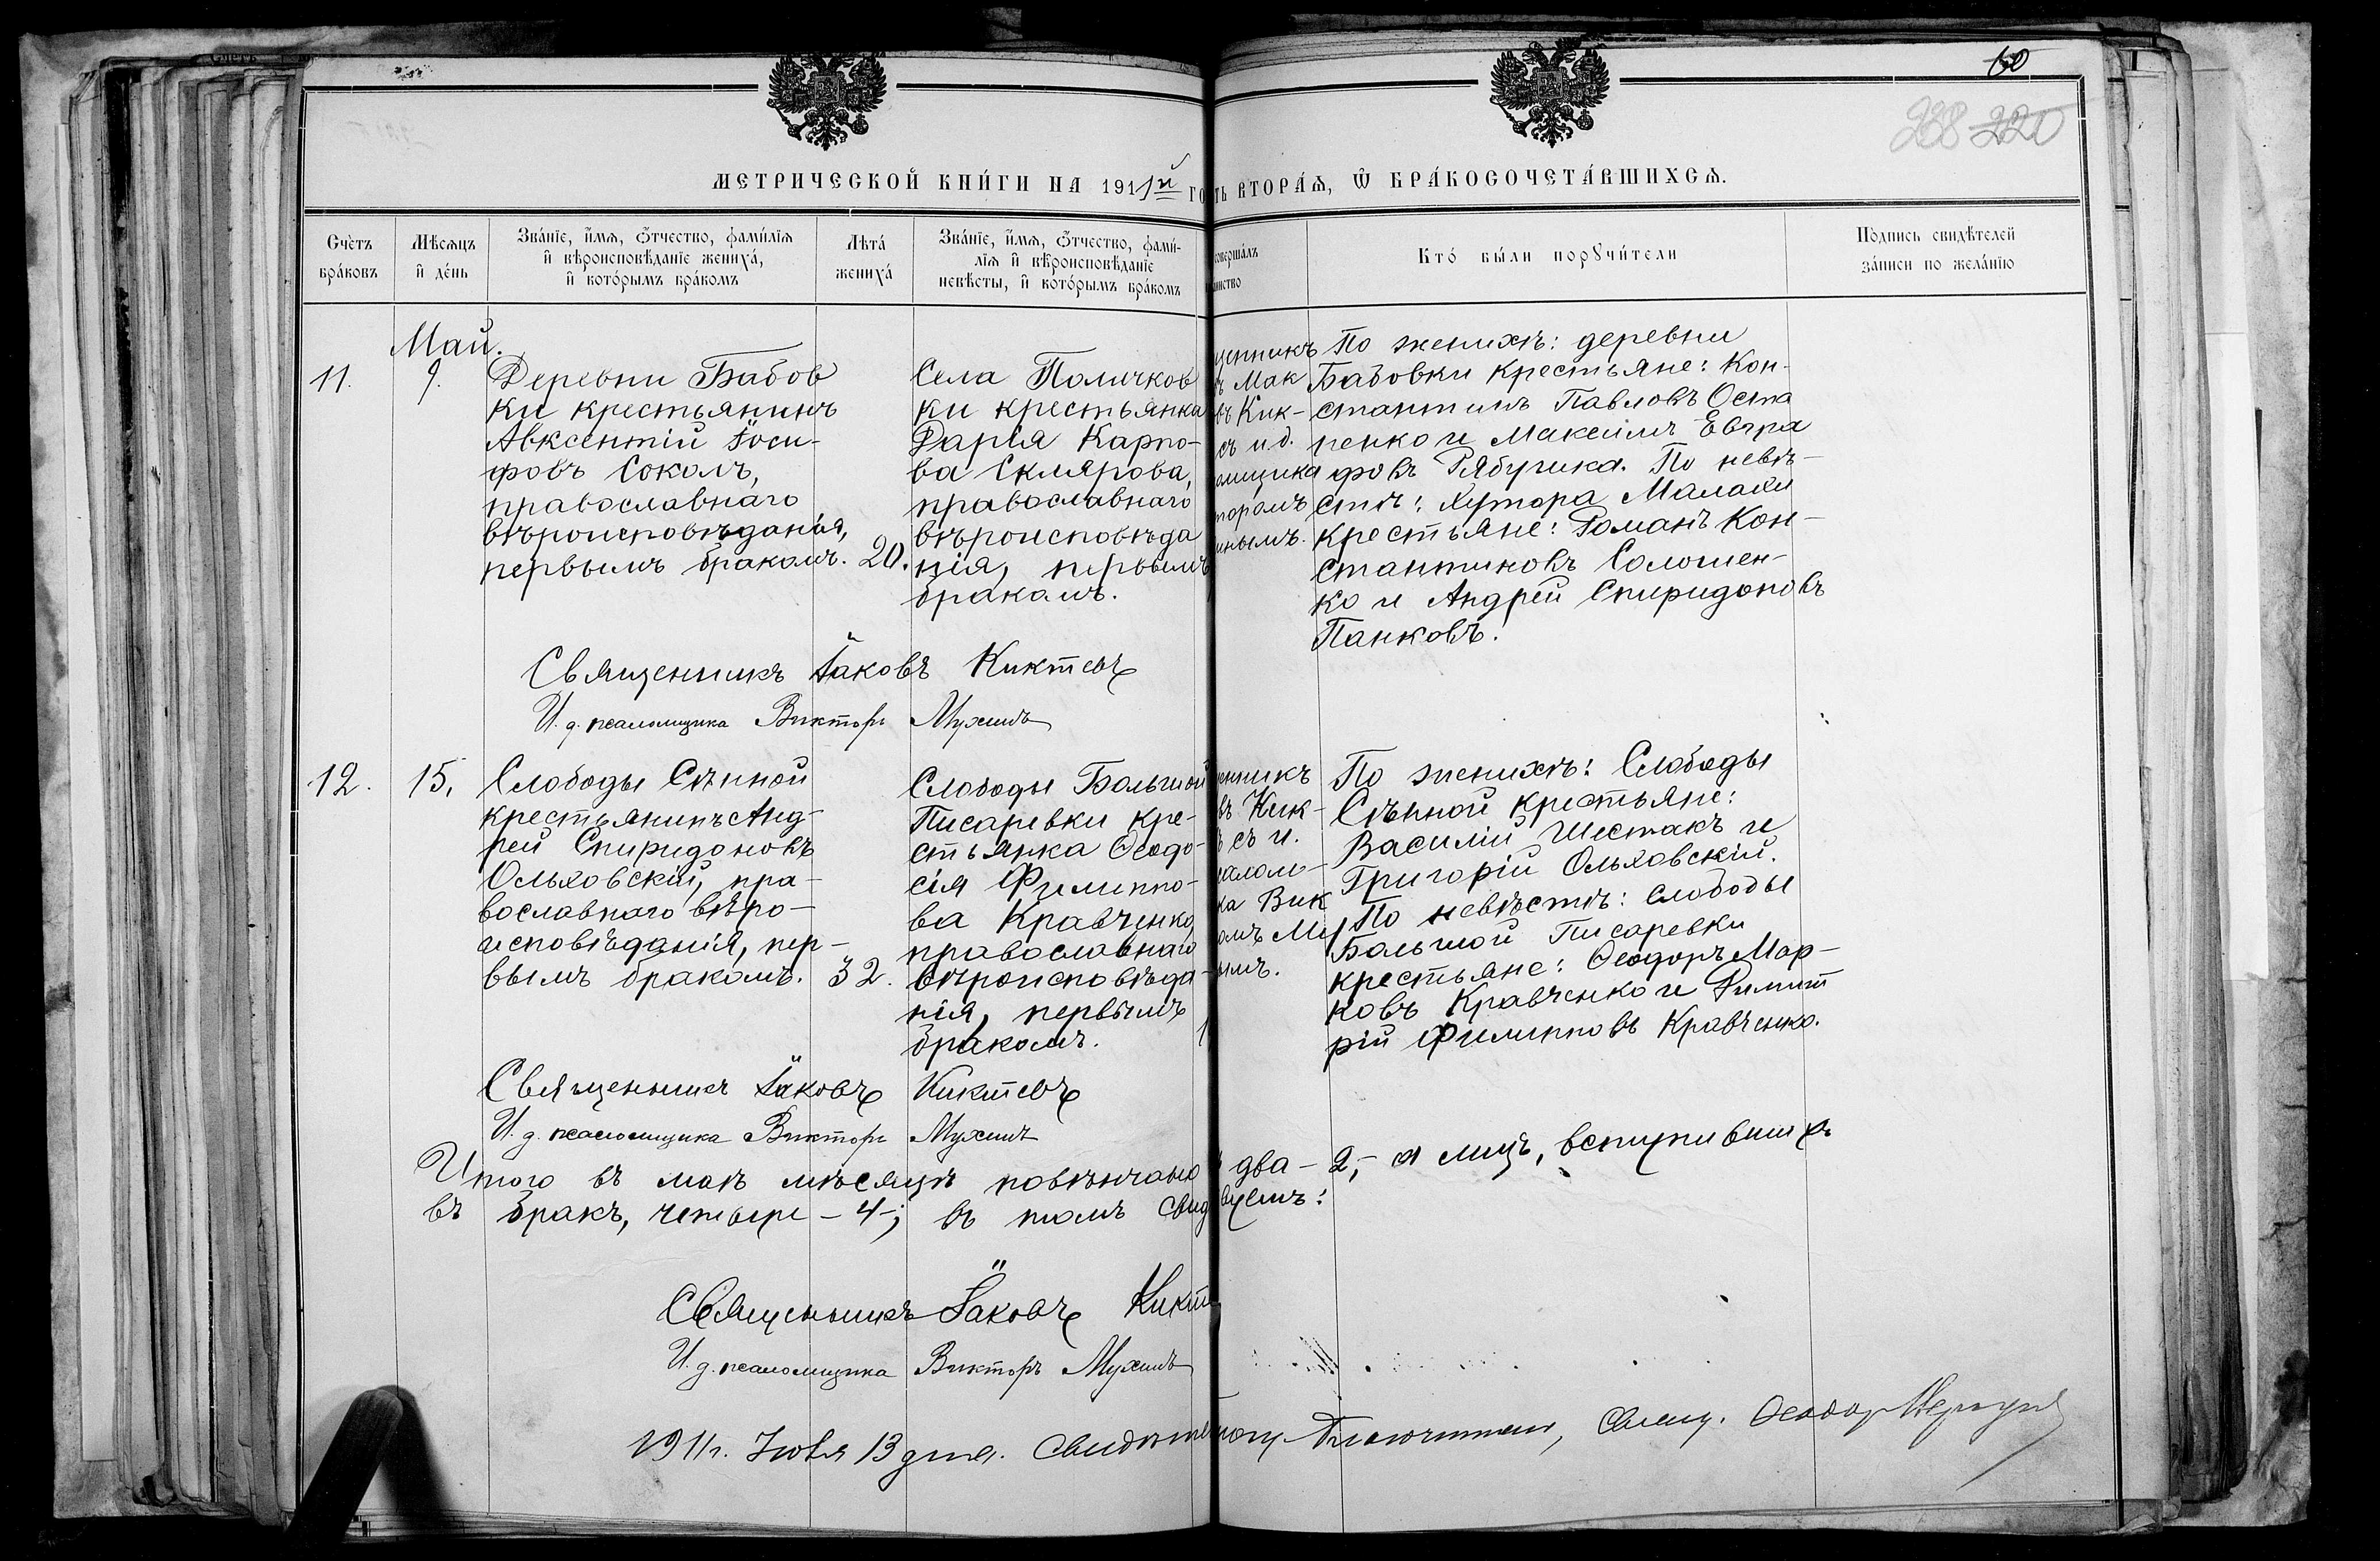 60
238 220
МЕТРИЧЕСКОЙ КНИ́ГИ НА 1911й ГО
ТЬ ВТОРА́Ѧ, Ѿ БРА́КОСОЧЕТА́ВШИХСѦ.
Сче́тъ бра́ковъ
Мѣ́сѧцъ и҆ де́нь
Зва́нїе, и҆́мѧ, ѻ҆́тчество, фами́лїѧ
и҆ вѣроисповѣ́данїе жениха́,
и҆ кото́рымъ бра́комъ
Лѣта́ жениха́
Зва́нїе, и҆́мѧ, ѻ҆́тчество, фами́-
лїѧ и҆ вѣроисповѣ́данїе
невѣ́сты, и҆ кото́рымъ бра́комъ
соверша́лъ
инство
Кто́ бы́ли порꙋчи́тели
По́дпись свидѣ́телей
за́писи по жела́нїю
Май.
11.
9.
Деревни Бабов
ки крестьянинъ
Авксентій Іоси-
фовъ Соколъ,
православнаго
вѣроисповѣданія,
первымъ бракомъ.
20.
Села Поличков
ки крестьянка
Дарія Карпо-
ва Склярова,
православнаго
вѣроисповѣда
нія, первымъ
бракомъ.
щенникъ
ъ Мак
въ Кик-
съ и.д.
омщика
торомъ
инымъ.
По женихѣ: деревни
Бабовки крестьяне: Кон-
стантинъ Павловъ Оста
пенко и Максимъ Евгра
фовъ Рябушка. По невѣ-
стѣ: хутора Малахи
крестьяне: Романъ Кон-
стантиновъ Солошен-
ко и Андрей Спиридоновъ
Панковъ.
Священникъ Іаковъ Киктевъ
И. д. псаломщика Викторъ Мухинъ
12.
15.
Слободы Сѣнной
крестьянинъ Анд-
рей Спиридоновъ
Ольховскій, пра-
вославнаго вѣро-
исповѣданія, пер-
вымъ бракомъ.
32.
Слободы Большой
Писаревки кре-
стьянка Ѳеодо-
сія Филиппо-
ва Кравченко,
православнаго
вѣроисповѣда-
нія, первымъ
бракомъ.
енникъ
въ Кик-
ъ съ и.
салом-
ка Вик
омъ Му
ымъ.
По женихѣ: Слободы
Сѣнной крестьяне:
Василій Шестакъ и
Григорій Ольховскій.
По невѣстѣ: слободы
Большой Писаревки
крестьяне: Ѳеодоръ Мар-
ковъ Кравченко и Димит
рій Филипповъ Кравченко.
Священникъ Іаковъ Киктевъ
И. д. псаломщика Викторъ Мухинъ
Итого въ маѣ мѣсяцѣ повѣнчано два - 2,- а лицъ, вступившихъ
въ бракъ, четыре - 4-; въ томъ свид вуемъ:
Священникъ Іаковъ Кикт
И. д. псаломщика Викторъ Мухинъ
1911 г. Іюля 13 дня. Свящ. Ѳеодоръ